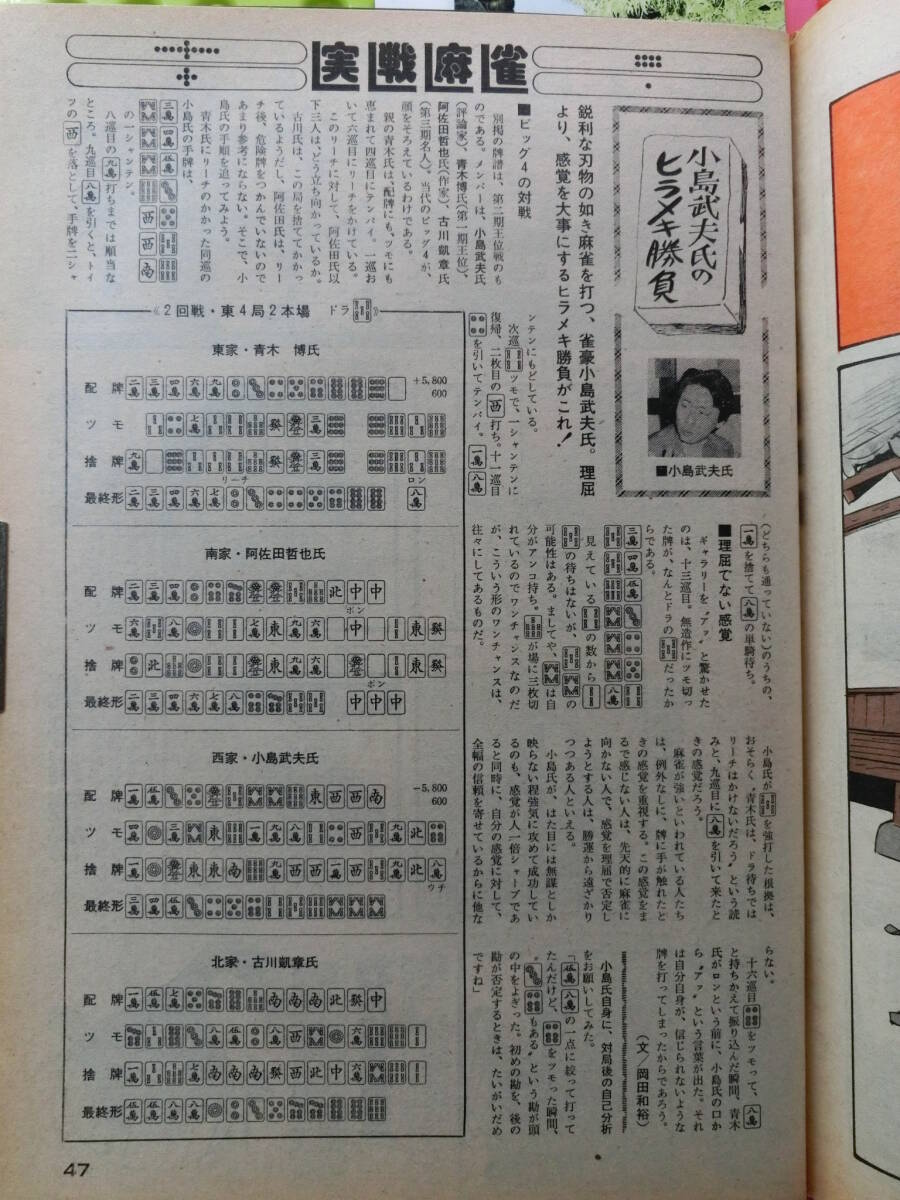 実戦麻雀
小島武夫氏の
ヒラメキ勝負
■小島武夫氏
鋭利な刃物の如き麻雀を打つ、雀豪小島武夫氏。理屈
より、感覚を大事にするヒラメキ勝負がこれ!
■ビッグ4の対戦
別掲の牌譜は、第二期王位戦のも
のである。メンバーは、小島武夫氏
(評論家)、青木博氏(第一期王位)、
阿佐田哲也氏(作家)、古川凱章氏
(第三期名人)。当代のビッグ4が、
顔をそろえているわけである。
親の青木氏は、配牌にも、ツモにも
恵まれて四巡目にテンパイ。一巡お
いて六巡目にリーチをかけている。
このリーチに対して、阿佐田氏以
下三人は、どう立ち向かっているか。
古川氏は、この局を捨ててかかっ
ているようだし、阿佐田氏は、リー
チ後、危険牌をつかんでいないので
あまり参考にならない。そこで、小
島氏の手順を追ってみよう。
青木氏にリーチのかかった同巡の
小島氏の手牌は、
三萬 四萬 伍萬 西 西 南
の一シャンテン。
八巡目の九萬打ちまでは順当な
ところ。九巡目八萬を引くと、トイ
ツの西を落として、手牌を二シャ
ンテンにもどしている。
次巡 ツモで、一シャンテンに
復帰、二枚目の西打ち。十一巡目
を引いてテンパイ。一萬八萬
(どちらも通っていない)のうちの、
一萬を捨てて八萬の単騎待ち。
■理屈でない感覚
ギャラリーを〝アッ〟と驚かせた
のは、十三巡目。無造作にツモ切っ
た牌が、なんとドラの だったか
らである。
三萬 四萬 伍萬 八萬
見えている の数から
の待ちはないが、 の
可能性はある。ましてや、 は自
分がアンコ持ち。 が場に三枚切
れているのでワンチャンスなのだ
が、こういう形のワンチャンスは、
往々にしてあるものだ。
小島氏が を強打した根拠は、
おそらく〝青木氏は、ドラ待ちでは
リーチはかけないだろう〟という読
みと、九巡目に八萬を引いて来たと
きの感覚だろう。
麻雀が強いといわれている人たち
は、例外なしに、牌に手が触れたと
きの感覚を重視する。この感覚をま
るで感じない人は、先天的に麻雀に
向かない人で、感覚を理屈で否定し
ようとする人は、勝運から遠ざかり
つつある人といえる。
小島氏が、はた目には無謀としか
映らない程強気に攻めて成功してい
るのも、感覚が人一倍シャープであ
ると同時に、自分の感覚に対して、
全幅の信頼を寄せているからに他な
らない。
十六巡目 をツモって、八萬
と持ちかえて振り込んだ瞬間、青木
氏がロンという前に、小島氏の口か
ら〝アッ〟という言葉が出た。それ
は自分自身が、信じられないような
牌を打ってしまったからであろう。
(文/岡田和裕)
小島氏自身に、対局後の自己分析
をお願いしてみた。
「伍萬八萬の一点に絞って打って
たんだけど、 をツモった瞬間、
〝 もある〟という勘が頭
の中をよぎった。初めの勘を、後の
勘が否定するときは、たいがいだめ
ですね」
《2回戦・東4局2本場 ドラ 》
東家・青木 博氏
配牌 二萬 三萬 四萬 六萬 九萬 +5,800
600
ツモ 七萬 發 三萬
捨牌 九萬 發 三萬
リーチ ロン
最終形 二萬 三萬 四萬 六萬 七萬 八萬
南家・阿佐田哲也氏
配牌 二萬 三萬 四萬 北 中 中
ポン
ツモ 六萬 八萬 七萬 東 九萬 六萬 中 東 發
捨牌 北 東 九萬 六萬 東 發
ポン
最終形 二萬 三萬 四萬 六萬 七萬 八萬 中 中 中
西家・小島武夫氏
配牌 一萬 伍萬 東 西 西 南 −5,800
600
ツモ 四萬 三萬 東 九萬 八萬 西 一萬 九萬 北
捨牌 一萬 東 東 南 九萬 西 西 一萬 西 九萬 北 八萬
ウチ
最終形 三萬 四萬 伍萬
北家・古川凱章氏
配牌 一萬 伍萬 七萬 南 南 南 北 發 中
ツモ 八萬 伍萬 八萬 西 六萬
捨牌 一萬 七萬 南 南 南 發 西 北 中 六萬
最終形 伍萬 伍萬 八萬 八萬
47